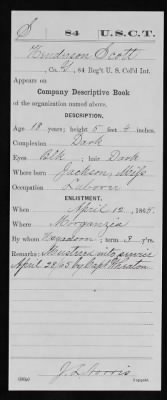 S 84 U.S.C.T.
Henderson Scott
, Co. , 84 Reg't U. S. Col'd Inf.
Appears on
Company Descriptive Book
of the organization named above.
DESCRIPTION.
Age 18 years; height 5 feet 4 inches.
Complexion Dark
Eyes Blk ; hair Dark
Where born Jackson, Miss
Occupation Laborer
ENLISTMENT.
When April 12, 1865.
Where Morganzia
By whom ; term 3 y'rs.
Remarks: Mustered into service
April 28/65 by Capt
J. L. Norris
Copyist.